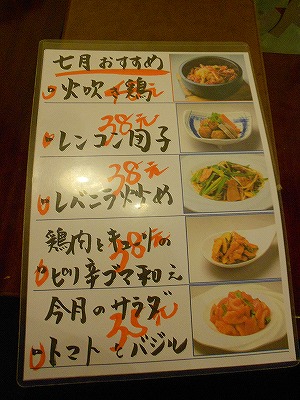 七月おすすめ
火吹き鶏
38元
レンコン団子
38元
レバニラ炒め
38元
鶏肉とキューリの
ピリ辛ゴマ和え
今月のサラダ
35元
トマトとバジル